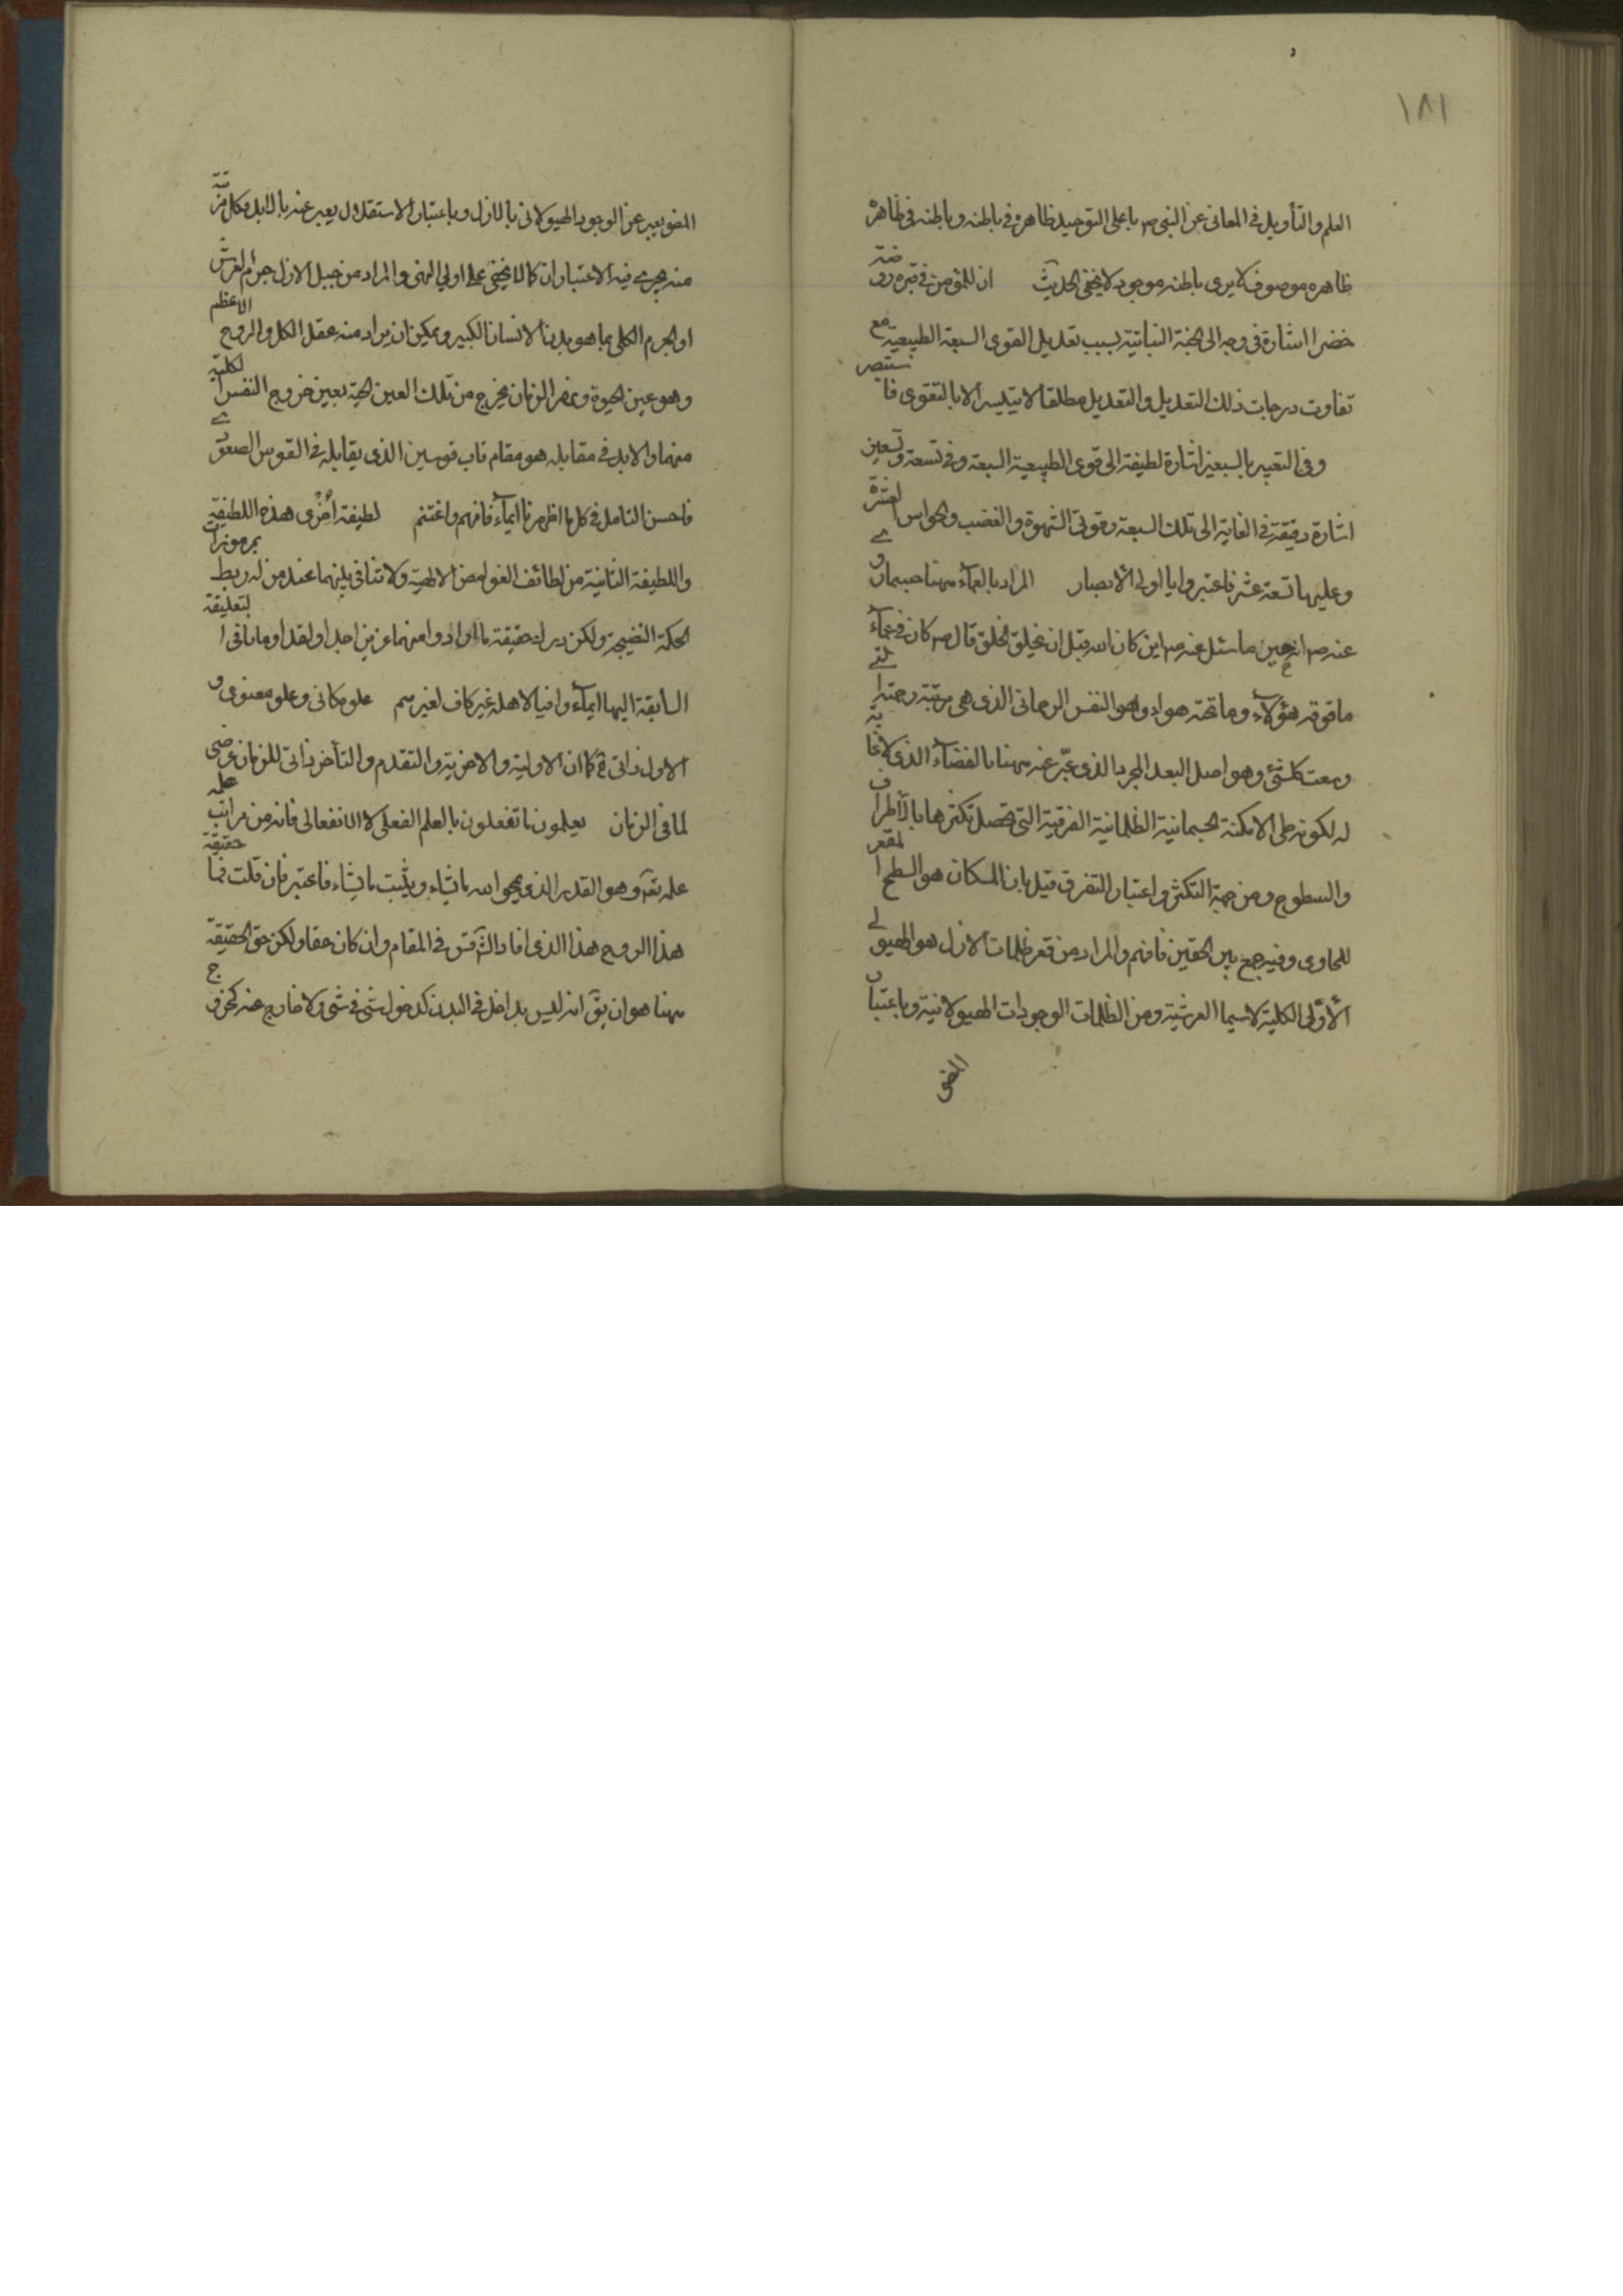 ١٨١
العلم والتأويل في المعاني عن النبي ص يا علي التوحيد ظاهره في باطنه وباطنه في ظاهره
ظاهره موصوف لا يرى باطنه موجود لا يخفى الحديث ان للمؤمن في قبره روضة
خضرا اشارة في وجه الى الجنة النباتية بسبب تعديل القوى السبعة الطبيعية مع
تفاوت درجات ذلك التعديل والتعديل مطلقا لا يتيسر الا بالتقوى فا ستبصر
وفي التعبير بالسبعين اشارة لطيفة الى قوى الطبيعية السبعة وفي تسعة وتسعين
اشارة دقيقة في الغاية الى تلك السبعة وقوتي الشهوة والغضب والحواس العشرة
وعليها تسعة عشر فاعتبروا يا اولي الأبصار المراد بالعماء ههنا حسبما
عنه ص انه حين ما سئل عنه ص اين كان الله قبل ان يخلق الخلق قال ص كان في عماء
ما فوقه هؤلاء وما تحته هواء وهو النفس الرحماني الذي هي مرتبة رحمته التي
وسعت كلشئ وهو اصل البعد المجرد الذي عبّر عنه ههنا بالفضاء الذي لا غاية
له لكونه طي الامكنة الجسمانية الظلمانية الفرقية التي تحصل تكثرها بالأطراف
والسطوح ومن جهة التكثر واعتبار التفرق قيل بان المكان هو السطح المقعر
للحاوي وفيه جمع بين الحقين فافهم والمراد من قعر ظلمات الازل هو الهيولى
الأولى الكلية لا سيما العرشية ومن الظلمات الوجودات الهيولانية وباعتبار
الضو
الضو يعبر عن الوجود الهيولاني بالازل وباعتبار الاستقلال يعبر عنه بالابد وكل
منه يجرى فيه الاعتباران كما لا يخفى على اولي النهى والمراد من جبل الازل جرم العرش
او الجرم الكلي بما هو بدن الانسان الكبير ويمكن ان يراد منه عقل الكل والروح الاعظم
وهو عين الحيوة ونهر الزمان يخرج من تلك العين الحية بعين خروج النفس الكلية
منها والابد في مقابله هو مقام قاب قوسين الذي يقابله في القوس الصعودي
فاحسن التامل في كل ما اظهرنا ايماء فافهم واغتنم لطيفة اخرى هذه اللطيفة
واللطيفة الثانية من لطائف الغوامض الالهية ولا تنافى بينهما عند من له ربط بمرموزات
الحكمة النضيجة ولكن درك حقيقة ما منهما عزيز احدا ولقد اومانا في التعليقة
السابقة اليها ايماء وافيا لاهله غير كاف لغيرهم علو مكاني وعلو معنوي و
الاول ذاتي كما ان الاولية والاخرية والتقدم والتأخر ذاتي للزمان عرضي
لما في الزمان يعلمون ما تفعلون بالعلم الفعلي لا الانفعالي فانه من مراتب علمه
علمه تعالى وهو القدر الذي يمحو الله ما يشاء ويثبت ما يشاء فاعتبر فان قلت فما حقيقة
هذا الروح هذا الذي افاد في المقام وان كان حقا ولكن حق الحقيقة
ههنا هو ان يق انه ليس بداخل في البدن كدخول شئ في شئ ولا خارج عنه كخروج